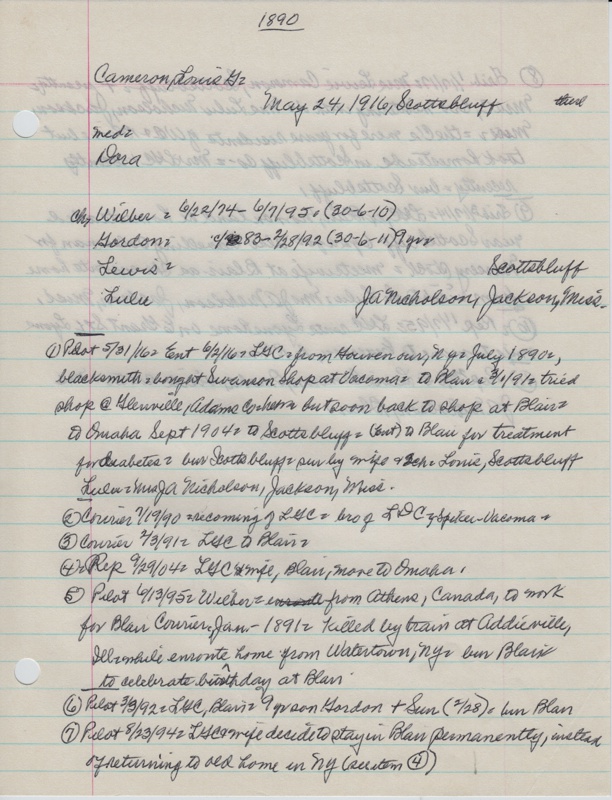 1890
Cameron, Louis G=
May 24, 1916, Scottsbluff
med=
Dora
ch, Wilber = 6/22/74 - 6/7/95 = (30-6-10)
Gordon = 83 - 2/28/92 (30-6-11) 9 yrs
Lewis = Scottsbluff
Lulu JA Nicholson, Jackson, Miss.
① Pilot 5/31/16 = Ent 6/2/16 = LGC = from Gouverneur, Ny = July 1890 =,
blacksmith = bought Swanson Shop at Vacoma = to Blair = 3/1/91 = tried
shop @ Glenville, Adams Co = but soon back to shop at Blair =
to Omaha Sept 1904 = to Scottsbluff = (Ent) to Blair for treatment
for diabetes = bur Scottsbluff = sur by wife & 2ch = Louis, Scottsbluff
Lulu = Mrs JA Nicholson, Jackson, Miss.
② Courier 7/19/90 = coming of LGC = bro of L D C of Spiker-Vacoma =
③ Courier 2/3/91 = LGC to Blair =
④ Rep 9/29/04 = LGC & wife, Blair, move to Omaha.
⑤ Pilot 6/13/95 = Wilber = from Athens, Canada, to work
for Blair Courier, Jan - 1891 = killed by train at Addieville,
Ill = while enroute home from Watertown, Ny = bur Blair
to celebrate birthday at Blair
⑥ Pilot 3/3/92 = LGC, Blair = 9 yr son Gordon + Sun (2/28) = bur Blair
⑦ Pilot 8/23/94 = LGC & wife decide to stay in Blair permanently, instead
of returning to old home in NY (see item ④)